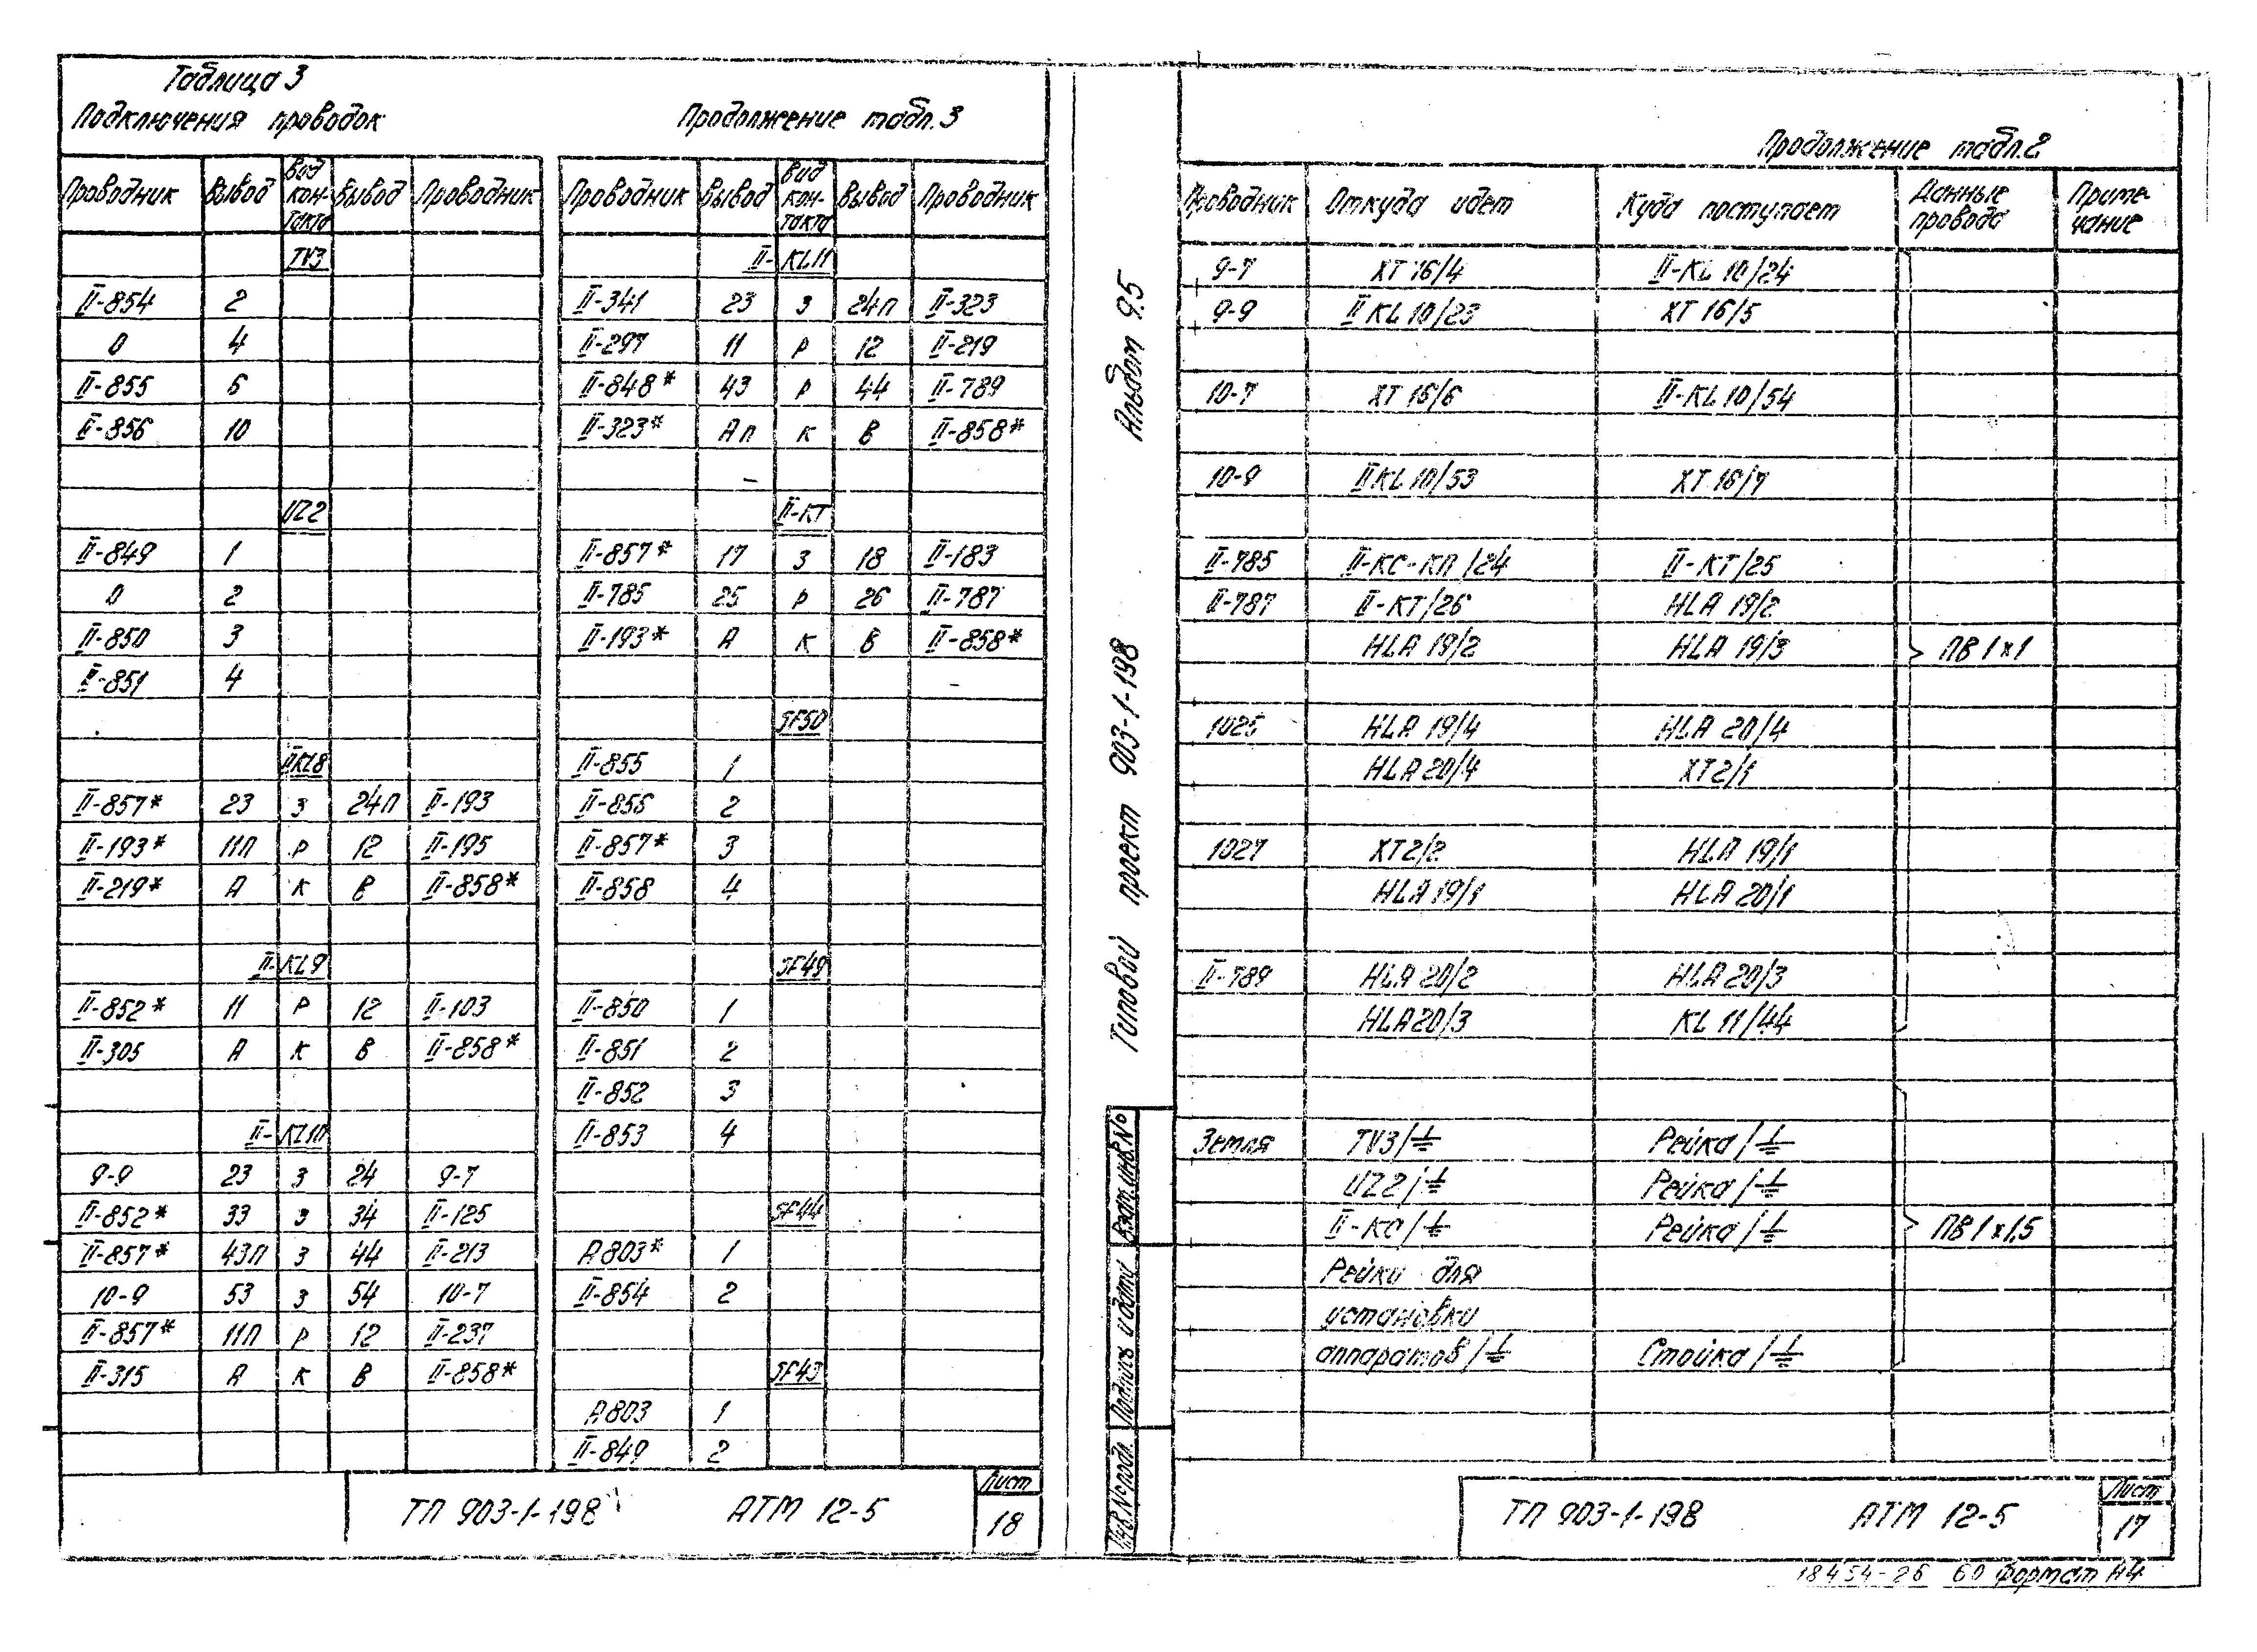 Таблица 3
Подключения проводок
Проводник Вывод Вид кон-такта Вывод Проводник
TV3
II-854 2
0 4
II-855 6
II-856 10
UZ2
II-849 1
0 2
II-850 3
II-851 4
IIKL8
II-857* 23 з 24П II-193
II-193* 11П р 12 II-195
II-219* А к В II-858*
II-KL9
II-852* 11 р 12 II-103
II-305 А к В II-858*
II-KL10
9-9 23 з 24 9-7
II-852* 33 з 34 II-125
II-857* 43П з 44 II-213
10-9 53 з 54 10-7
II-857* 11П р 12 II-237
II-315 А к В II-858*
Продолжение табл.3
Проводник Вывод Вид кон-такта Вывод Проводник
II-KL11
II-341 23 з 24П II-323
II-297 11 р 12 II-219
II-848* 43 р 44 II-789
II-323* Ап к В II-858*
II-КТ
II-857* 17 з 18 II-183
II-785 25 р 26 II-787
II-193* А к В II-858*
SF50
II-855 1
II-856 2
II-857* 3
II-858 4
SF49
II-850 1
II-851 2
II-852 3
II-853 4
SF44
А803* 1
II-854 2
SF43
А803 1
II-849 2
ТП 903-1-198 АТМ 12-5
Лист
18
Альбом 9.5
Типовой проект 903-1-198
Взам.инв.№
Подпись и дата
Инв.№подл.
Продолжение табл.2
Проводник Откуда идет Куда поступает Данные провода Приме-чание
9-7 XT 16/4 II-KL 10/24
9-9 II KL 10/23 XT 16/5
10-7 XT 16/6 II-KL 10/54
10-9 II KL 10/53 XT 16/7
II-785 II-КС-КП/24 II-КТ/25
II-787 II-КТ/26 HLA 19/2
HLA 19/2 HLA 19/3 ПВ 1х1
1025 HLA 19/4 HLA 20/4
HLA 20/4 XT2/1
1027 XT2/2 HLA 19/1
HLA 19/1 HLA 20/1
II-789 HLA 20/2 HLA 20/3
HLA20/3 KL 11/44
Земля TV3/⏚ Рейка/⏚
UZ2/⏚ Рейка/⏚
II-КС/⏚ Рейка/⏚ ПВ 1х1,5
Рейки для
установки
аппаратов/⏚ Стойка/⏚
ТП 903-1-198 АТМ 12-5
Лист
17
18454-26 60 Формат А4